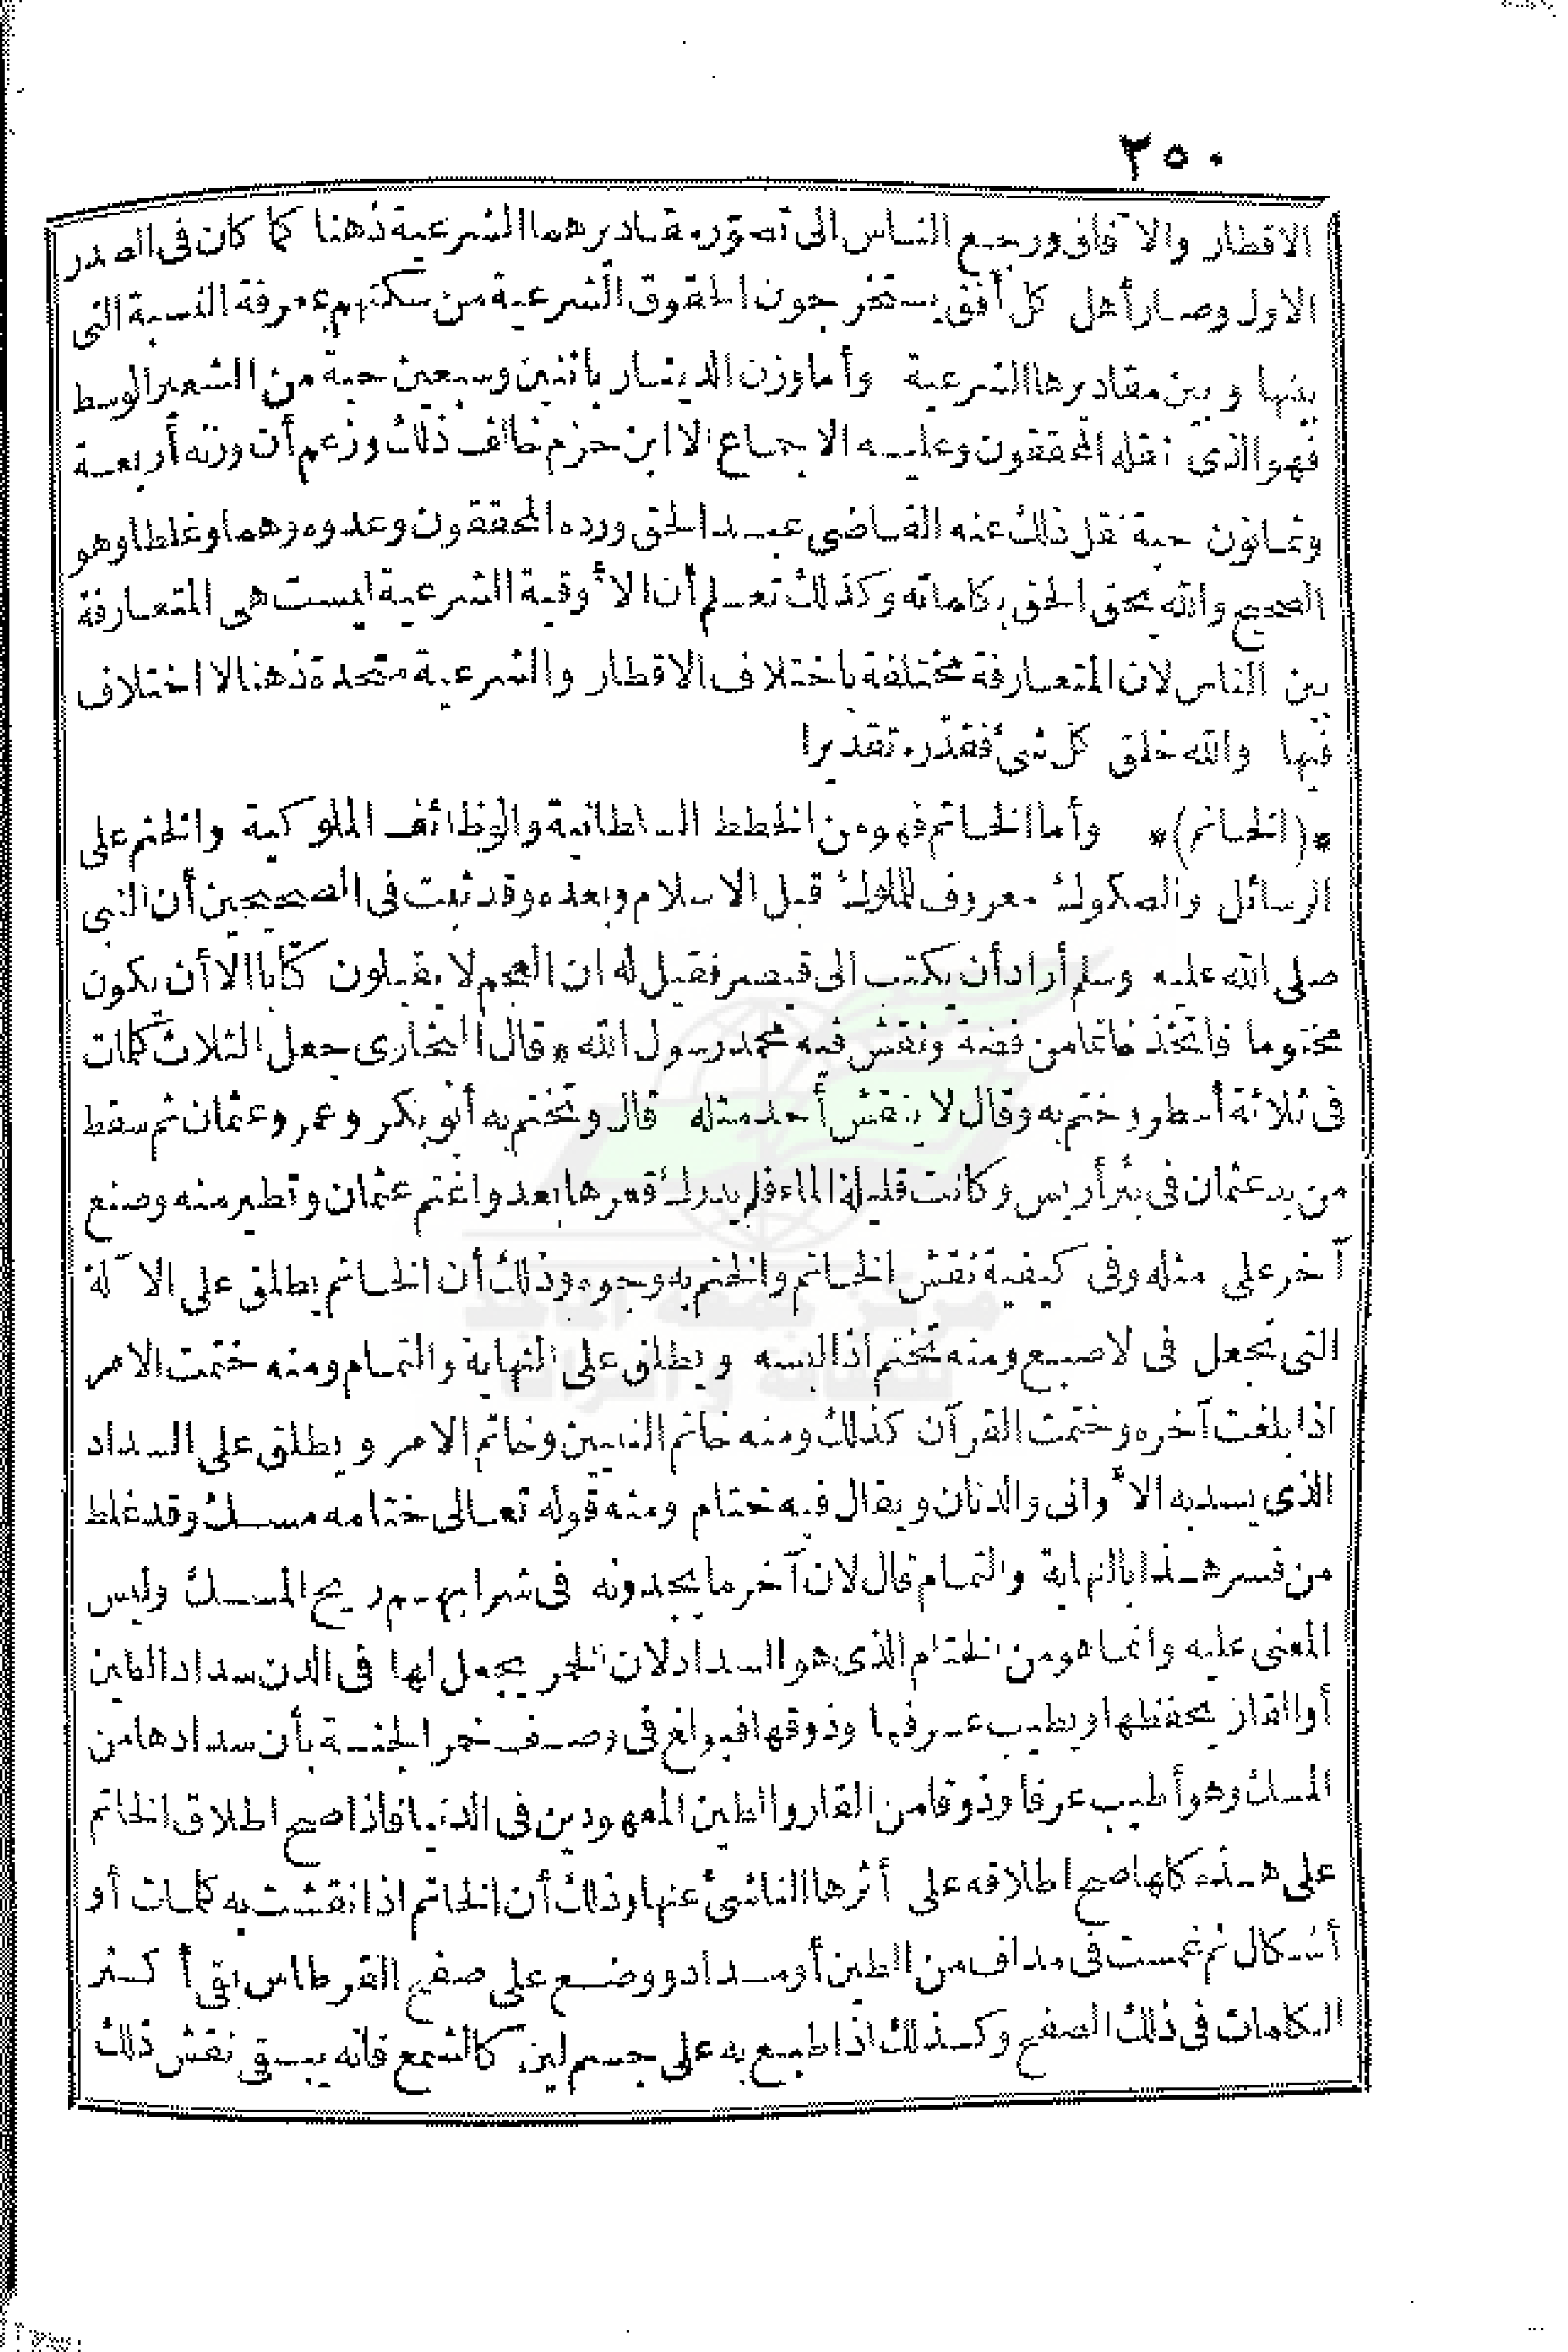 ٣٥٠
الاقطار والآفاق ورجع الناس الى تصوّر مقاديرهما الشرعية ذهنا كما كان فى الصدر
الاول وصار أهل كل أفق يستخرجون الحقوق الشرعية من سكتهم بمعرفة النسبة التى
بينها وبين مقاديرها الشرعية وأما وزن الدينار باثنين وسبعين حبة من الشعير الوسط
فهو الذى نقله المحققون وعليه الاجماع الا ابن حزم خالف ذلك وزعم أن وزنه أربعة
وثمانون حبة نقل ذلك عنه القاضى عبد الحق ورده المحققون وعدوه وهما وغلطا وهو
الصحيح والله يحق الحق بكلماته وكذلك تعلم أن الأوقية الشرعية ليست هى المتعارفة
بين الناس لان المتعارفة مختلفة باختلاف الاقطار والشرعية متحدة ذهنا لا اختلاف
فيها والله خلق كل شئ فقدّره تقديرا
*(الخاتم)* وأما الخاتم فهو من الخطط السلطانية والوظائف الملوكية والختم على
الرسائل والصكوك معروف للملوك قبل الاسلام وبعده وقد ثبت فى الصحيحين أن النبى
صلى الله عليه وسلم أراد أن يكتب الى قيصر فقيل له ان العجم لا يقبلون كتابا الا أن يكون
مختوما فاتخذ خاتما من فضة ونقش فيه محمد رسول الله * قال البخارى جعل الثلاث كلمات
فى ثلاثة أسطر وختم به وقال لا ينقش أحد مثله قال وتختم به أبو بكر وعمر وعثمان ثم سقط
من يد عثمان فى بئر أريس وكانت قليلة الماء فلم يدرك قعرها بعد واغتم عثمان وتطير منه وصنع
آخر على مثله وفى كيفية نقش الخاتم والختم به وجوه وذلك أن الخاتم يطلق على الآلة
التى تجعل فى لاصبع ومنه تختم اذا لبسه ويطلق على النهاية والتمام ومنه ختمت الامر
اذا بلغت آخره وختمت القرآن كذلك ومنه خاتم النبيين وخاتم الامر ويطلق على السداد
الذى يسد به الأوانى والدنان ويقال فيه ختام ومنه قوله تعالى ختامه مسك وقد غلط
من فسر هذا بالنهاية والتمام قال لان آخر ما يجدونه فى شرابهم ريح المسك وليس
المعنى عليه وانما هو من الختام الذى هو السداد لان الخمر يجعل لها فى الدن سداد الطين
أو القار يحفظها ويطيب عرفها وذوقها فبولغ فى وصف خمر الجنة بأن سدادها من
المسك وهو أطيب عرفا وذوقا من القار والطين المعهودين فى الدنيا فاذا صح اطلاق الخاتم
على هذه كلها صح اطلاقه على أثرها الناشئ عنها وذلك أن الخاتم اذا نقشت به كلمات أو
أشكال ثم غمست فى مداف من الطين أو مداد ووضع على صفح القرطاس بقى أكثر
الكلمات فى ذلك الصفح وكذلك اذا طبع به على جسم لين كالشمع فانه يبقى نقش ذلك